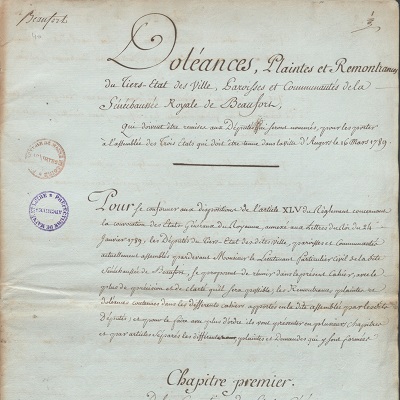 Beaufort
Doléances, Plaintes et Remontrances
du Tiers-Etat des Ville, Paroisses et Communautés de la
Sénéchaussée Royale de Beaufort,
Qui doivent être remises aux Députés qui seront nommés, pour les porter
à l'assemblée des Trois Etats qui doit être tenue dans la ville d'Angers le 16 Mars 1789.
Pour se conformer aux dispositions de l'article XLV du Règlement concernant
la convocation des Etats Généraux du Royaume, annexé aux Lettres du Roi du 24
Janvier 1789, les Députés du Tiers-Etat des dites Ville, paroisses et Communautés
actuellement assemblés pardevant Monsieur le Lieutenant Particulier Civil de la dite
Sénéchaussée de Beaufort, se proposent de réunir dans le présent Cahier, avec le
plus de précision et de clarté qu'il sera possible, les Remontrances, plaintes et
doléances contenues dans les différents cahiers apportés en la dite assemblée par les dits
Députés; et pour le faire avec plus d'ordre ils vont présenter en plusieurs chapitres
et par articles séparés les différentes plaintes et Demandes qui y sont formées
Chapitre premier.